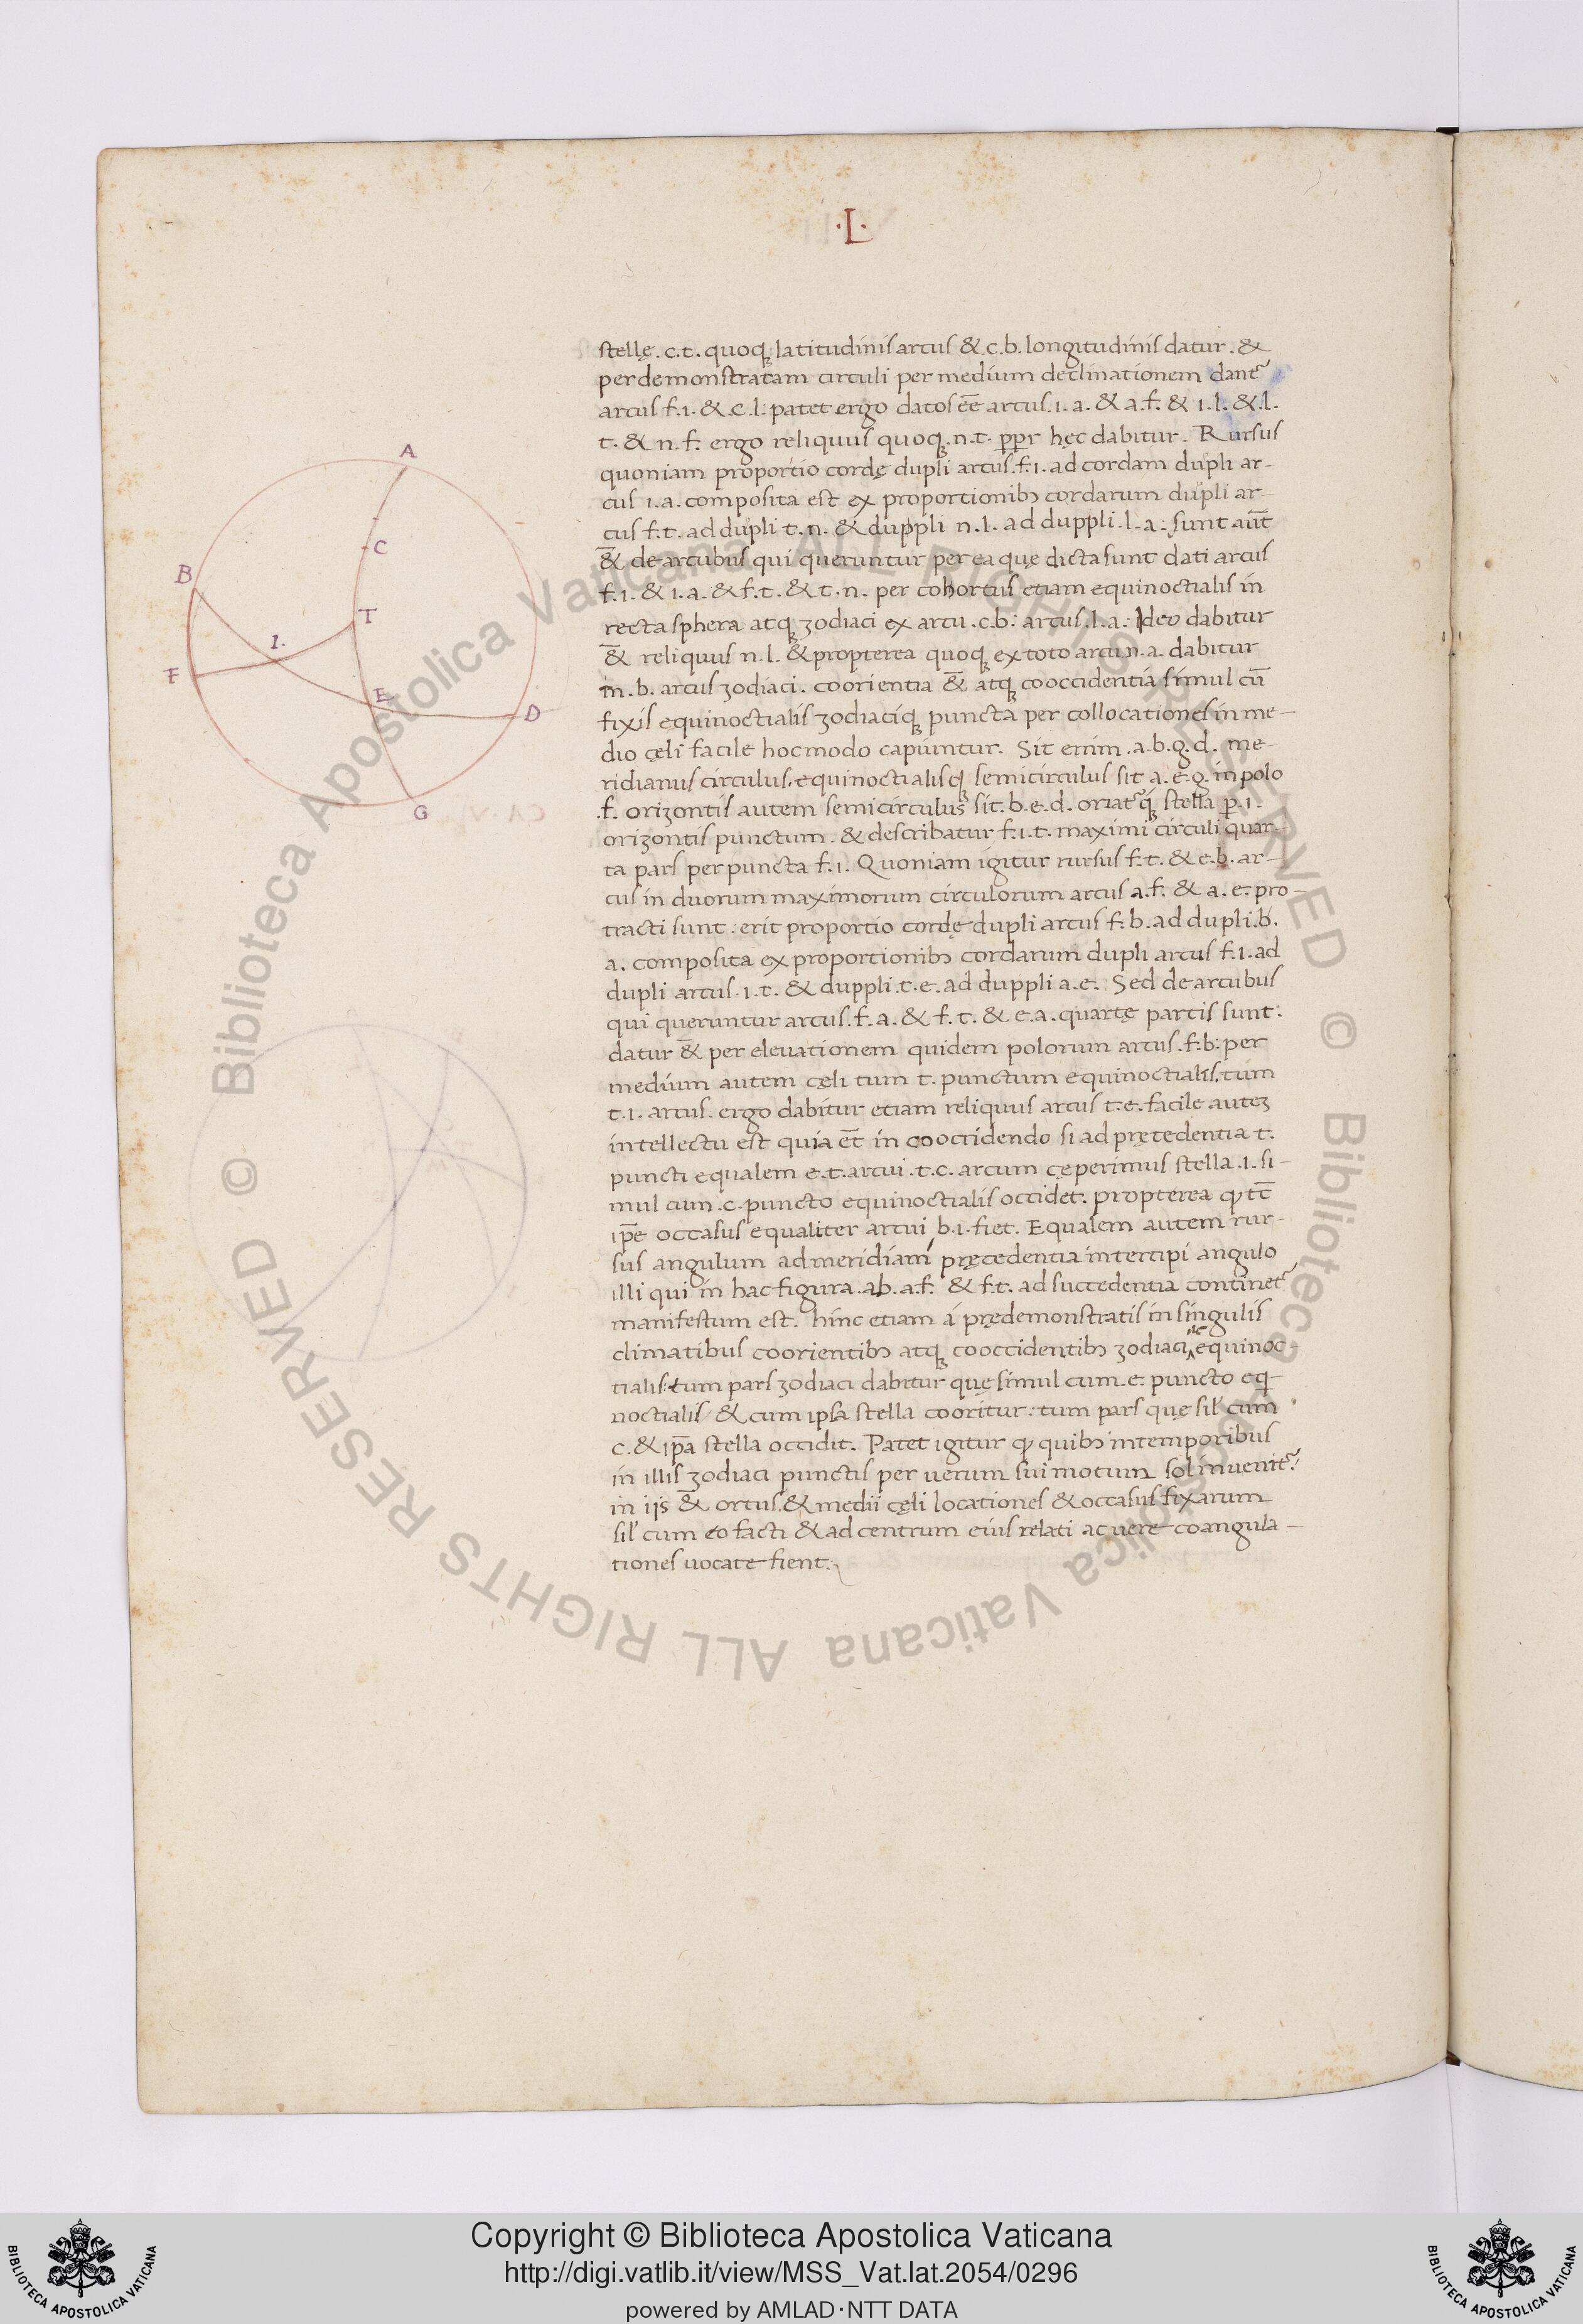 ·L·
stellę . c.t. quoqꝫ latitudinis arcus & c.b. longitudinis datur . &
per demonstratam circuli per medium declinationem danẽ
arcus f.i. & c.l: patet ergo datos eẽ arcus .i.a. & a.f. & i.l. & .l.
t. & n.f. ergo reliquus quoqꝫ .n.t. ꝓpr hęc dabitur . Rursus
quoniam proportio cordę dupli arcus .f.i. ad cordam dupli ar-
cus i.a. composita est ex proportionibꝫ cordarum dupli ar-
cus f.t. ad dupli t.n. & duppli n.l. ad duppli .l.a: sunt aũt
&̃ de arcubus qui queruntur per ea quę dicta sunt dati arcus
f.i. & i.a. & f.t. & t.n. per cohortus etiam equinoctialis in
recta sphera atqꝫ zodiaci ex arcu .c.b: arcus .l.a: Ideo dabitur
&̃ reliquus n.l. & propterea quoqꝫ ex toto arcu n.a. dabitur
m.b. arcus zodiaci . coorientia &̃ atqꝫ cooccidentia simul cũ
fixis equinoctialis zodiaciqꝫ puncta per collocationes in me-
dio cęli facile hoc modo capiuntur. Sit enim .a.b.g.d. me-
ridianus circulus. equinoctialisqꝫ semicirculus sit a.e.g. in polo
.f. orizontis autem semicirculus sit .b.e.d. oriat᷑qꝫ stella ꝑ .i.
orizontis punctum . & describatur f.i.t. maximi circuli quar-
ta pars per puncta f.i. Quoniam igitur rursus f.t. & e.b. ar-
cus in duorum maximorum circulorum arcus a.f. & a.e. pro-
tracti sunt: erit proportio cordę dupli arcus f.b. ad dupli .b.
a. composita ex proportionibꝫ cordarum dupli arcus f.i. ad
dupli arcus .i.t. & duppli .t.e. ad duppli a.e. Sed de arcubus
qui queruntur arcus .f.a. & f.t. & e.a. quartę partis sunt:
datur &̃ per elevationem quidem polorum arcus .f.b: per
medium autem cęli tum t. punctum equinoctialis. tum
t.i. arcus. ergo dabitur etiam reliquus arcus t.e. facile auteꝫ
intellectu est quia et̃ in cooccidendo si ad pręcedentia t.
puncti equalem e.t. arcui .t.c. arcum cęperimus stella .i. si-
mul cum .c. puncto equinoctialis occidet. propterea ꝙ tc̃
ip̃e occasus equaliter arcui b.i. fiet. Equalem autem rur-
sus angulum ad meridiam pręcedentia intercipi angulo
illi qui in hac figura .ab.a.f. & f.t. ad succedentia continet᷑
manifestum est. hinc etiam á prędemonstratis in singulis
climatibus coorientibꝫ atqꝫ cooccidentibꝫ zodiaci equinoc-
tialis: tum pars zodiaci dabitur quę simul cum .e. puncto eq̃-
noctialis / & cum ipsa stella cooritur: tum pars quę sil' cum
c. & ip̃a stella occidit. Patet igitur ꝙ quibꝫ in temporibus
in illis zodiaci punctis per verum sui motum sol invenit᷑:
in iįs &̃ ortus & medii cęli locationes & occasus fixarum
sil' cum eo facti & ad centrum eius relati ac vere coangula-
tiones vocate fient.
A
C
B
T
I.
F
E
D
G
© Biblioteca Apostolica Vaticana ALL RIGHTS RESERVED
© Biblioteca Apostolica Vaticana ALL RIGHTS RESERVED
BIBLIOTECA APOSTOLICA VATICANA
Copyright © Biblioteca Apostolica Vaticana
http://digi.vatlib.it/view/MSS_Vat.lat.2054/0296
powered by AMLAD·NTT DATA
BIBLIOTECA APOSTOLICA VATICANA